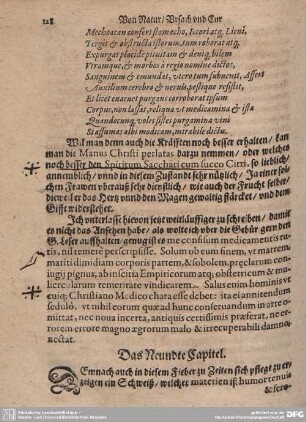 128 Von Natur/ Vrsach vnd Cur
Mechoacan confert stomacho, Iecoriatq́, Lieni,
Tergiq́ & obstructa istorum, tum roborat atq́
Expurgat placidè pituitam & deniq́, bilem
Vtramque, & morbos à regio nomine dictos,
Sanguinem & emundat, vtero tum subuenit, Affert
Auxilium cerebro & neruis, pestiq́ resistit,
Et licet euacuet purgans corroborat ipsum
Corpus, non lassat, reliqua vt medicamina & ista
Quandocunq́, voles, sistes purgamina vini
Staffumas albi modicam, mirabile dictu.
Wil man denn auch die Kräfften noch besser erhalten/ kan
man die Manus Christi perlatas darzu nemmen/ oder welches
noch besser den Spiritum Sacchari cum succo Citri, so lieblich/
annemblich/ vnnd in diesem Zustandt sehr nützlich/ Ja einer sol-
chen Frawen vberauß sehr dienstlich/ wie auch der Frucht selber/
dieweil er das Hertz vnnd den Magen gewaltig stärcket/ vnd dem
Gifft widerstehet.
Ich vnterlasse hievon jetzt weitläuffiger zu schreiben/ damit
es nicht das Ansehen habe/ als wolte ich vber die Gebür gern den
G. Leser auffhalten/ genug ist es me confisum medicamentis tu-
tis, nil temerè perscripsisse. Solum ob eum finem, vt matrem
mariti dimidiam corporis partem, & sobolem, preclarum con-
iugij pignus, ab inscitia Empiricorum atq́, obstetricum & mu-
liercularum temeritate vindicarem. Salus enim hominis vni-
cuiq́; Christiano Medico chara esse debet: ita ei annitendum
sedulò, vt nihil eorum quæ ad hunc conseruandum
mittat, nec noua incerta, antiquis certissimis præferat, ne er-
rorem errore magno ægrorum malo & irrecuperabili damno,
nectat.
Das Neundte Capitel.
Demnach auch in diesem Fieber zu Zeiten sich pflegt zu er-
zeigen ein Schweiß/ welches materien ist humor tenuis
& sero-